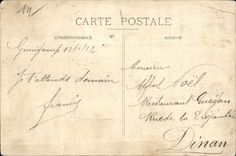 14
CARTE POSTALE
CORRESPONDANCE
ADRESSE
Guingamp 12/1/12
Je t'attends demain
Francis
Monsieur
Alfred Noël
Restaurant
Rue de la
Dinan